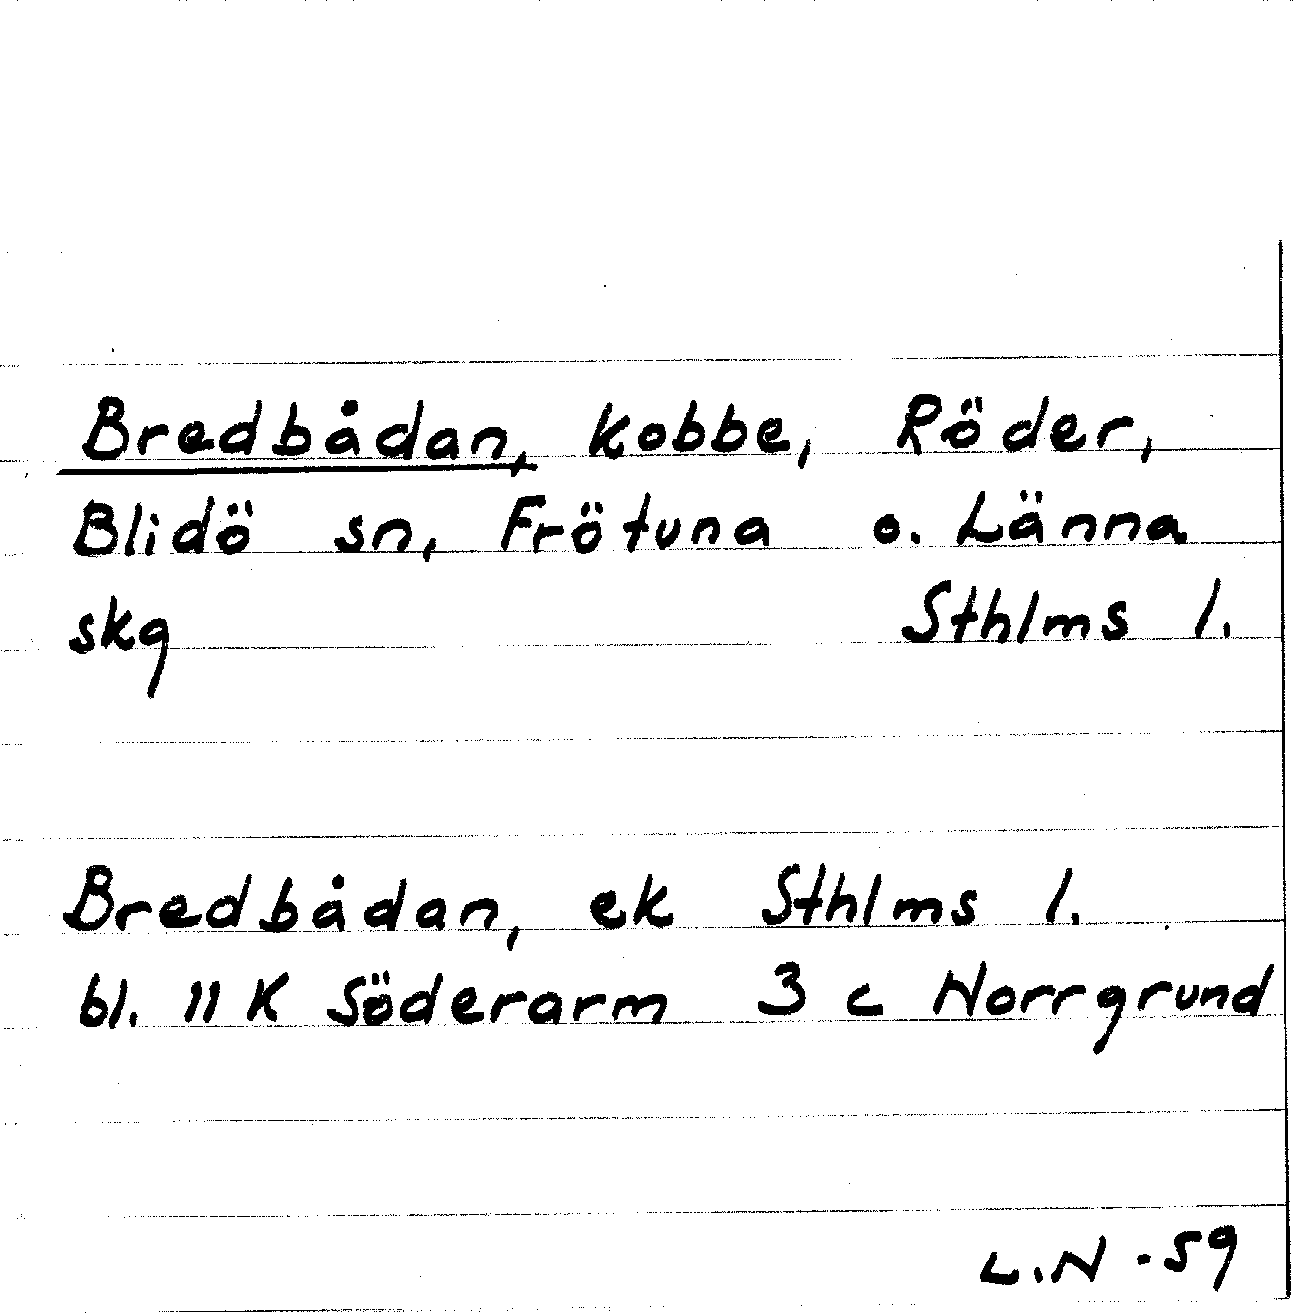 Bredbådan, kobbe, Röder,
Blidö sn, Frötuna o. Länna
skg Sthlms l.
Bredbådan, ek Sthlms l.
bl. 11 K Söderarm 3 c Norrgrund
L.N -59